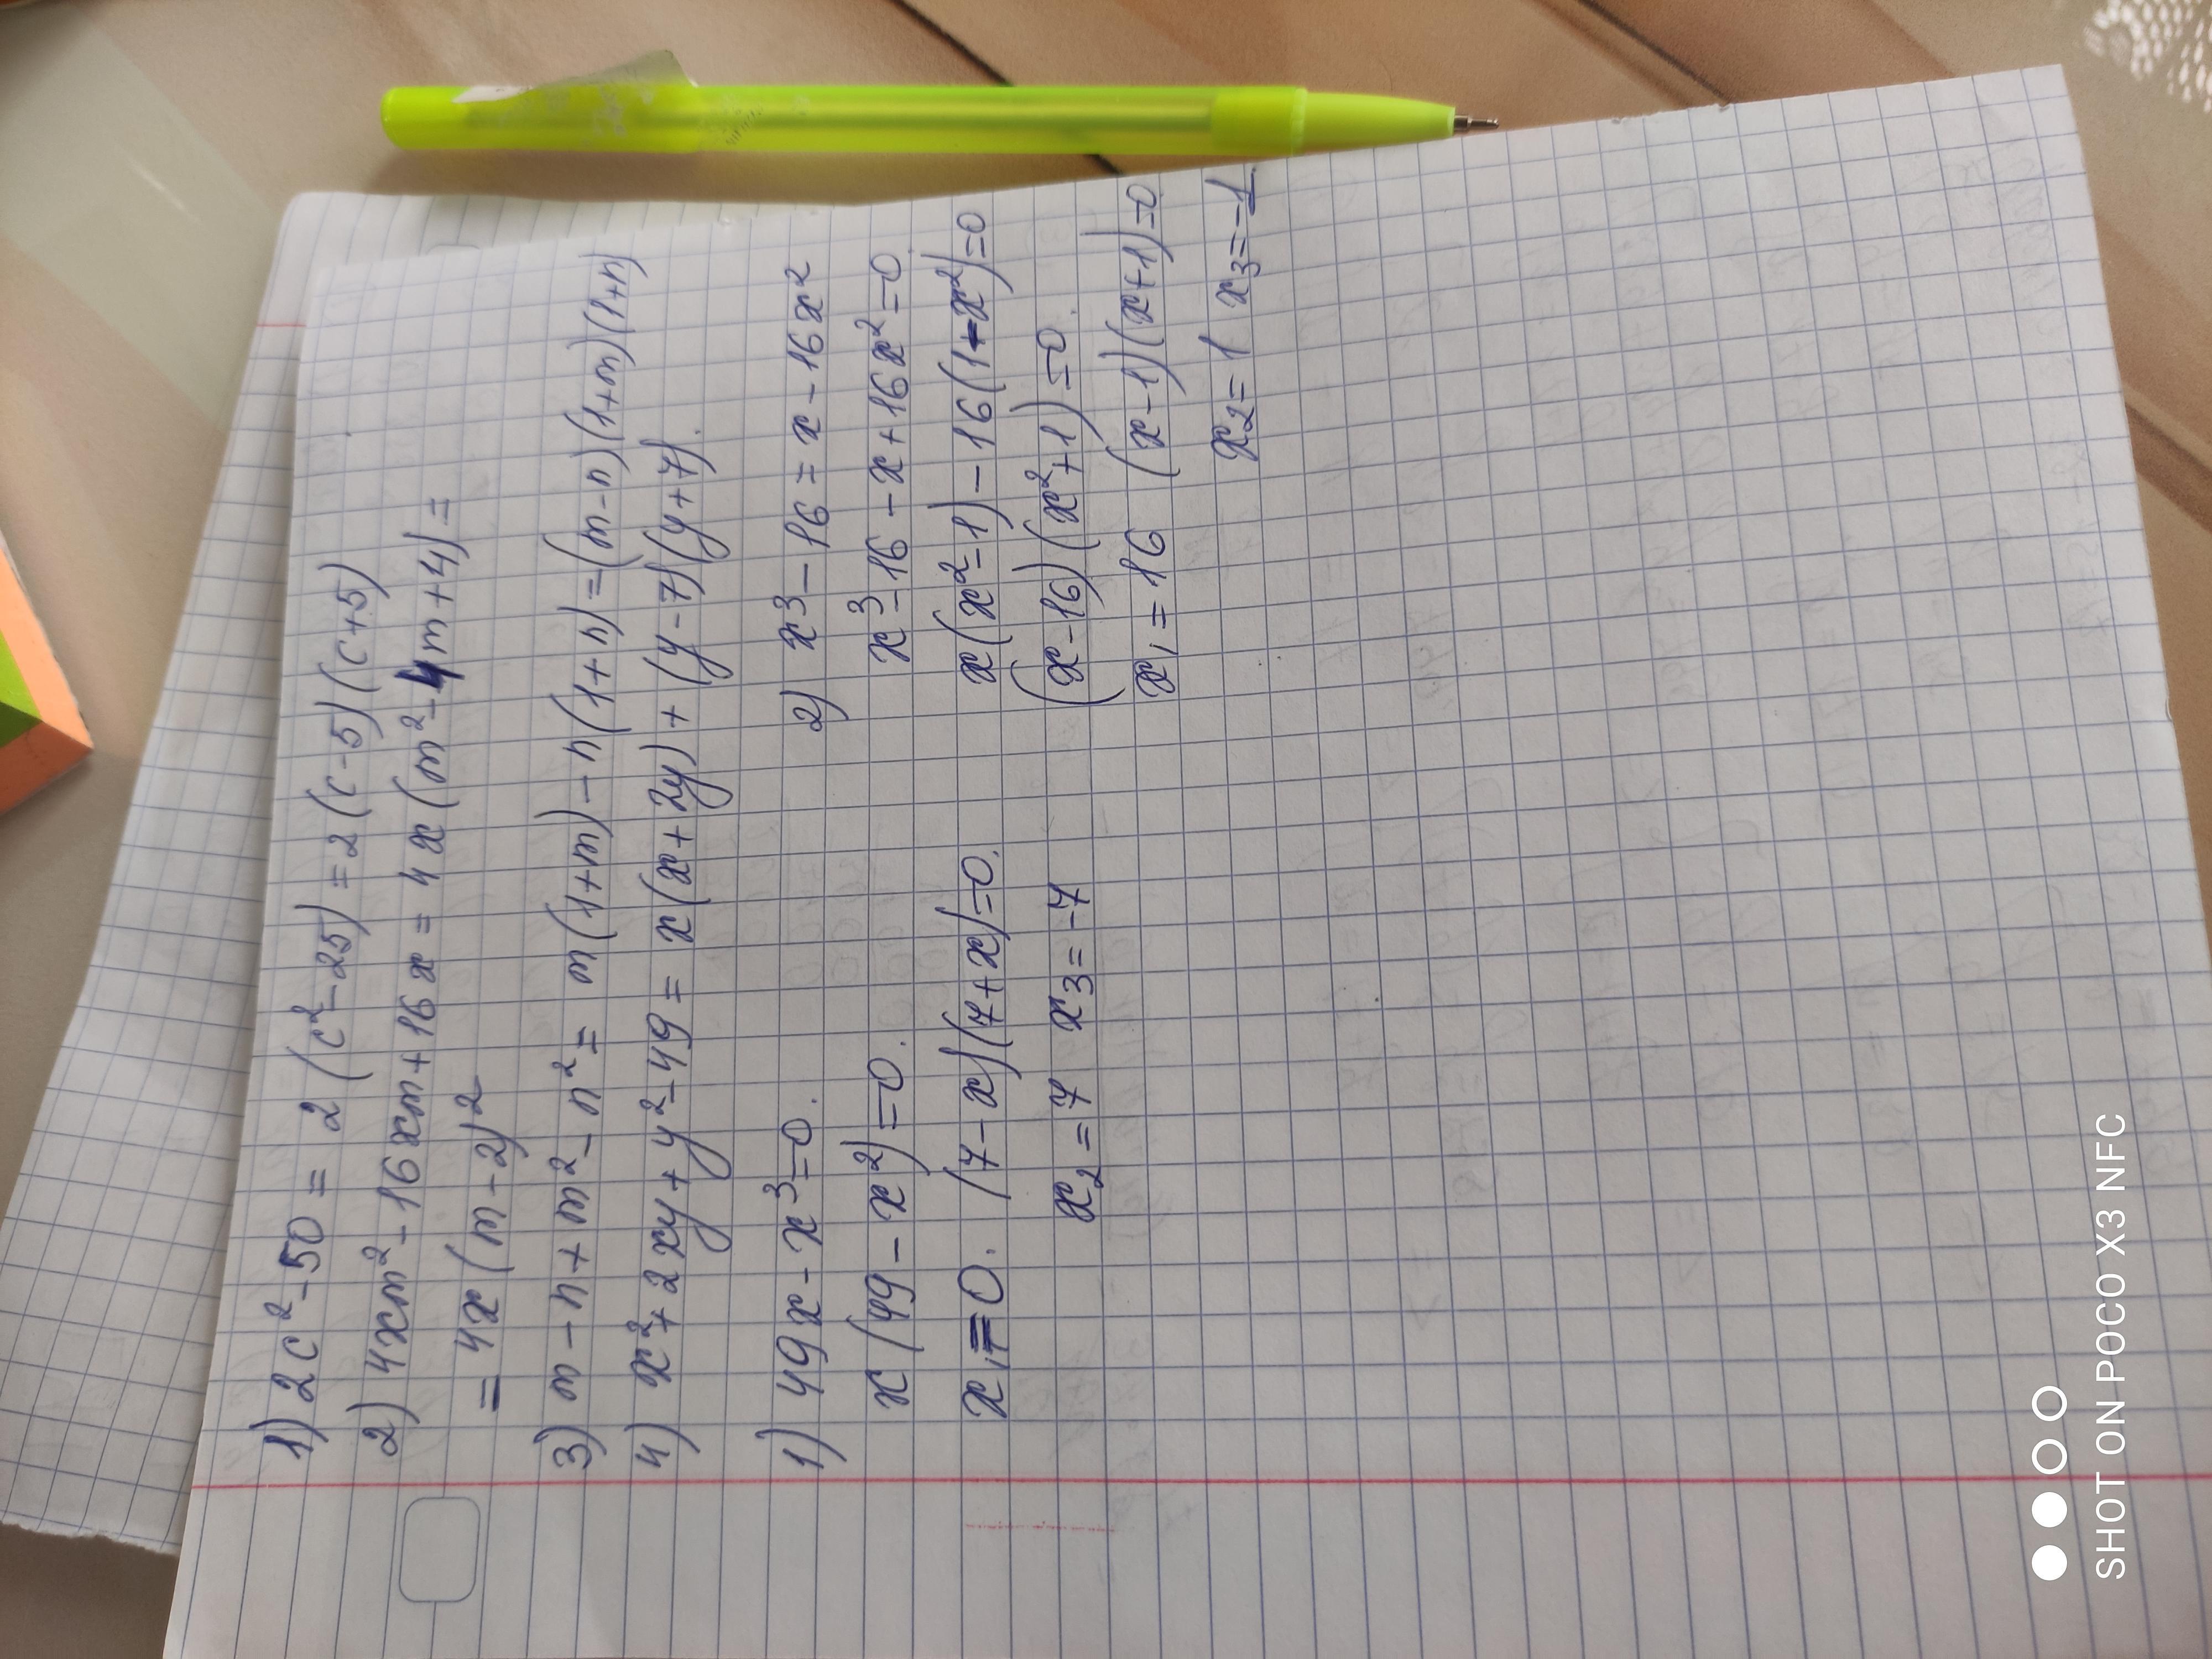 1) 2c²-50 = 2(c²-25) = 2(c-5)(c+5)
2) 4xm²-16xm+16x = 4x(m²-4m+4) =
= 4x(m-2)²
3) m-n+m²-n² = m(1+m)-n(1+n) = (m-n)(1+m)(1+n)
4) x²+2xy+y²-49 = x(x+2y)+(y-7)(y+7).
1) 49x-x³=0. 2) x³-16=x-16x²
x(49-x²)=0. x³-16-x+16x²=0.
x₁=0. (7-x)(7+x)=0. x(x²-1)-16(1-x²)=0
x₂=7 x₃=-7 (x-16)(x²+1)=0.
x₁=16 (x-1)(x+1)=0
x₂=1 x₃=-1
SHOT ON POCO X3 NFC